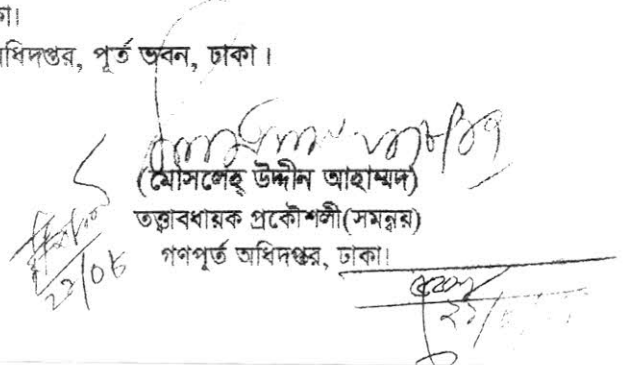 কা।
ধিদপ্তর, পূর্ত ভবন, ঢাকা।
(মোসলেহ্ উদ্দীন আহাম্মদ)
তত্ত্বাবধায়ক প্রকৌশলী(সমন্বয়)
গণপূর্ত অধিদপ্তর, ঢাকা।
২২/০৮